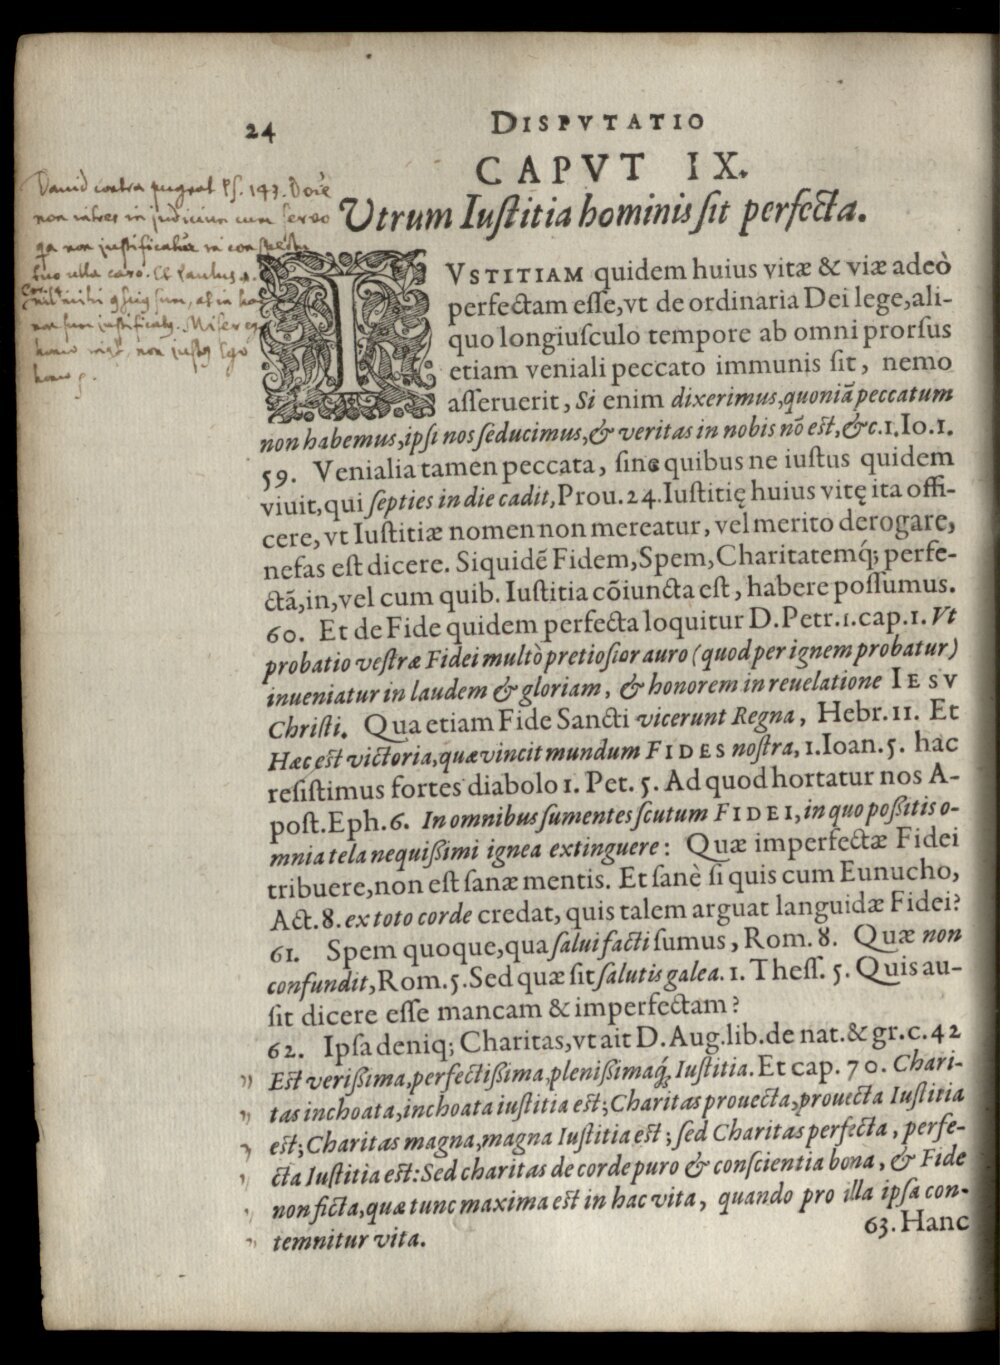 24
DISPVTATIO
CAPVT IX.
Dauid contra pugnat Ps. 143. Dñe
non intres in judicium cum servo
qa non justificabitur in conspectu
tuo ulla caro. Et Paulus 1.
Cor. 4. nil mihi conscius sum, at in hoc
non sum justificatus. Miser ego
homo
homo
Vtrum Iuſtitia hominis ſit perfecta.
IVSTITIAM quidem huius vitæ & viæ adeò
perfectam eſſe,vt de ordinaria Dei lege,ali-
quo longiuſculo tempore ab omni prorſus
etiam veniali peccato immunis ſit, nemo
aſſeruerit, Si enim dixerimus,quoniã peccatum
non habemus,ipſi nos ſeducimus,& veritas in nobis nõ eſt,&c.1.Io.1.
59. Venialia tamen peccata, ſine quibus ne iuſtus quidem
viuit,qui ſepties in die cadit,Prou.24.Iuſtitię huius vitę ita offi-
cere,vt Iuſtitiæ nomen non mereatur, vel merito derogare,
nefas eſt dicere. Siquidẽ Fidem,Spem,Charitatemq́; perfe-
ctã,in,vel cum quib. Iuſtitia cõiuncta eſt, habere poſſumus.
60. Et de Fide quidem perfecta loquitur D.Petr.1.cap.1. Vt
probatio veſtræ Fidei multò pretioſior auro (quod per ignem probatur)
inueniatur in laudem & gloriam, & honorem in reuelatione IESV
Chriſti. Qua etiam Fide Sancti vicerunt Regna, Hebr.11. Et
Hæc eſt victoria,quæ vincit mundum FIDES noſtra, 1.Ioan.5. hac
reſiſtimus fortes diabolo 1. Pet. 5. Ad quod hortatur nos A-
poſt.Eph.6. In omnibus ſumentes ſcutum FIDEI,in quo poßitis o-
mnia tela nequißimi ignea extinguere: Quæ imperfectæ Fidei
tribuere,non eſt ſanæ mentis. Et ſanè ſi quis cum Eunucho,
Act.8. ex toto corde credat, quis talem arguat languidæ Fidei?
61. Spem quoque,qua ſalui facti ſumus, Rom. 8. Quæ non
confundit,Rom.5.Sed quæ ſit ſalutis galea. 1. Theſſ. 5. Quis au-
ſit dicere eſſe mancam & imperfectam?
62. Ipſa deniq; Charitas,vt ait D. Aug.lib.de nat.& gr.c.42
Eſt verißima,perfectißima,plenißimaq́; Iuſtitia. Et cap. 70. Chari-
tas inchoata,inchoata iuſtitia eſt;Charitas prouecta,prouecta Iuſtitia
eſt;Charitas magna,magna Iuſtitia eſt; ſed Charitas perfecta, perfe-
cta Iuſtitia eſt:Sed charitas de corde puro & conſcientia bona, & Fide
non ficta,quæ tunc maxima eſt in hac vita, quando pro illa ipſa con-
temnitur vita.
63. Hanc